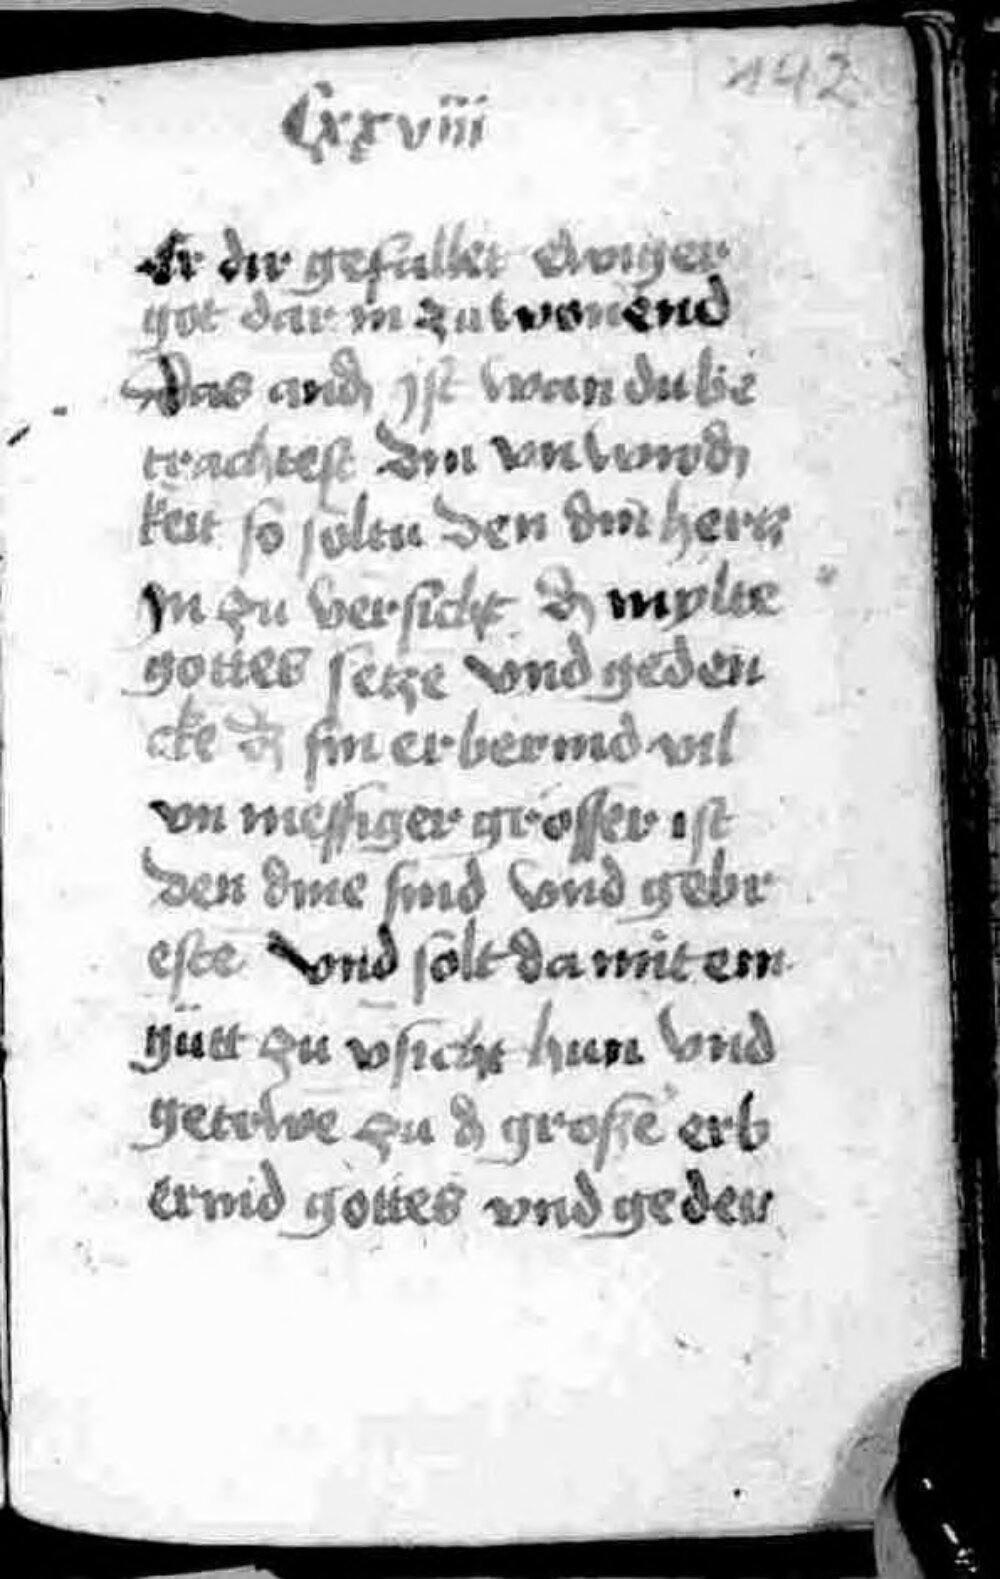 Cxxviii
192
er dir gefallet Ewiger
got dar in zu wonend
Das and) ist wan du be
trachtest Din vn wird)
keit so soltu Den din hertz
In zu versicht d) mylte
gottes setze vnd geden
cke d) sin erbermd vil
vn messiger grösser ist
Den dine sind vnd gebr
este vnd solt da mit ein
gůtt zu vsicht han vnd
getrwe zu d) grosse erb
ermd gottes vnd geden